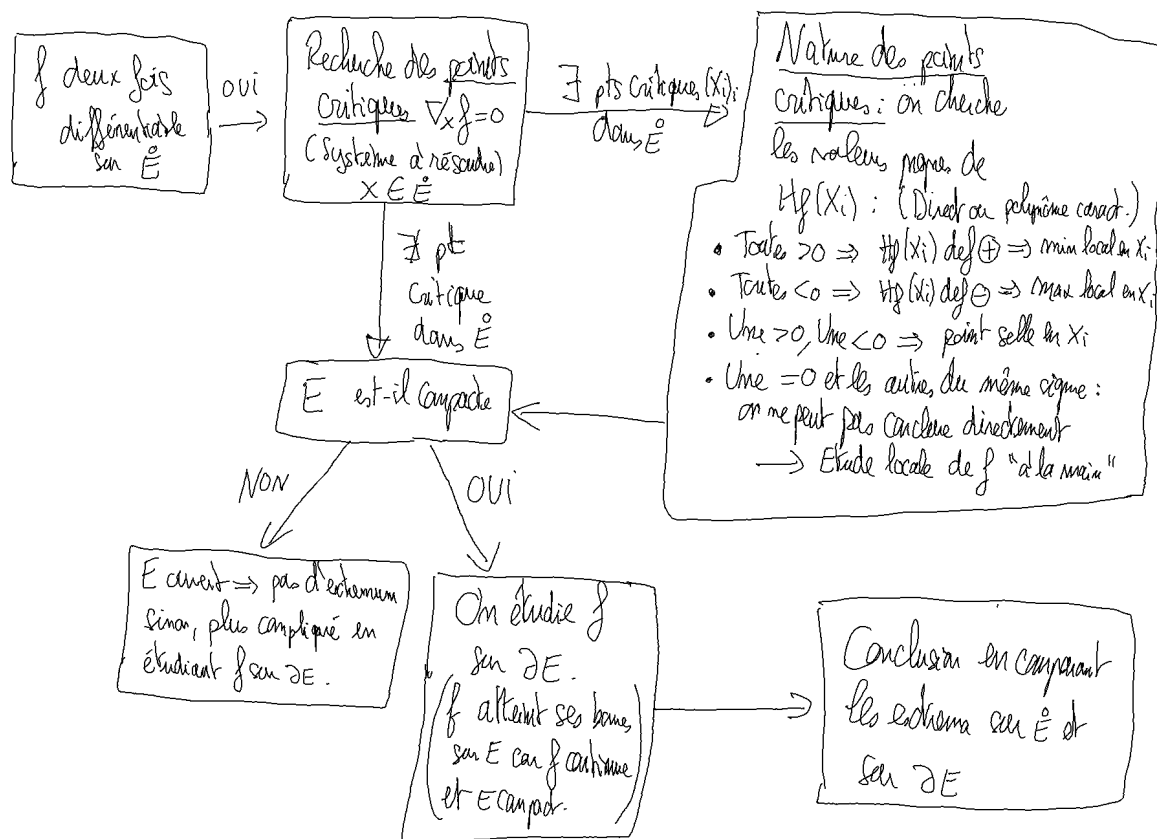 f deux fois
différentiable
sur E̊
OUI
Recherche des points
critiques ∇ₓf=0
(Système à résoudre)
X ∈ E̊
∃ pts critiques (Xi)i
dans E̊
Nature des points
critiques : on cherche
les valeurs propres de
Hf(Xi) : (Direct ou polynôme caract.)
• Toutes >0 ⇒ Hf(Xi) def ⊕ ⇒ min local en Xi
• Toutes <0 ⇒ Hf(Xi) def ⊖ ⇒ max local en Xi
• Une >0, Une <0 ⇒ point selle en Xi
• Une =0 et les autres du même signe :
on ne peut pas conclure directement
→ Etude locale de f "à la main"
∄ pt
critique
dans E̊
E est-il compact
NON
OUI
E ouvert ⇒ pas d'extremum
sinon, plus compliqué en
étudiant f sur ∂E.
On étudie f
sur ∂E.
(f atteint ses bornes
sur E car f continue
et E compact.)
Conclusion en comparant
les extrema sur E̊ et
sur ∂E